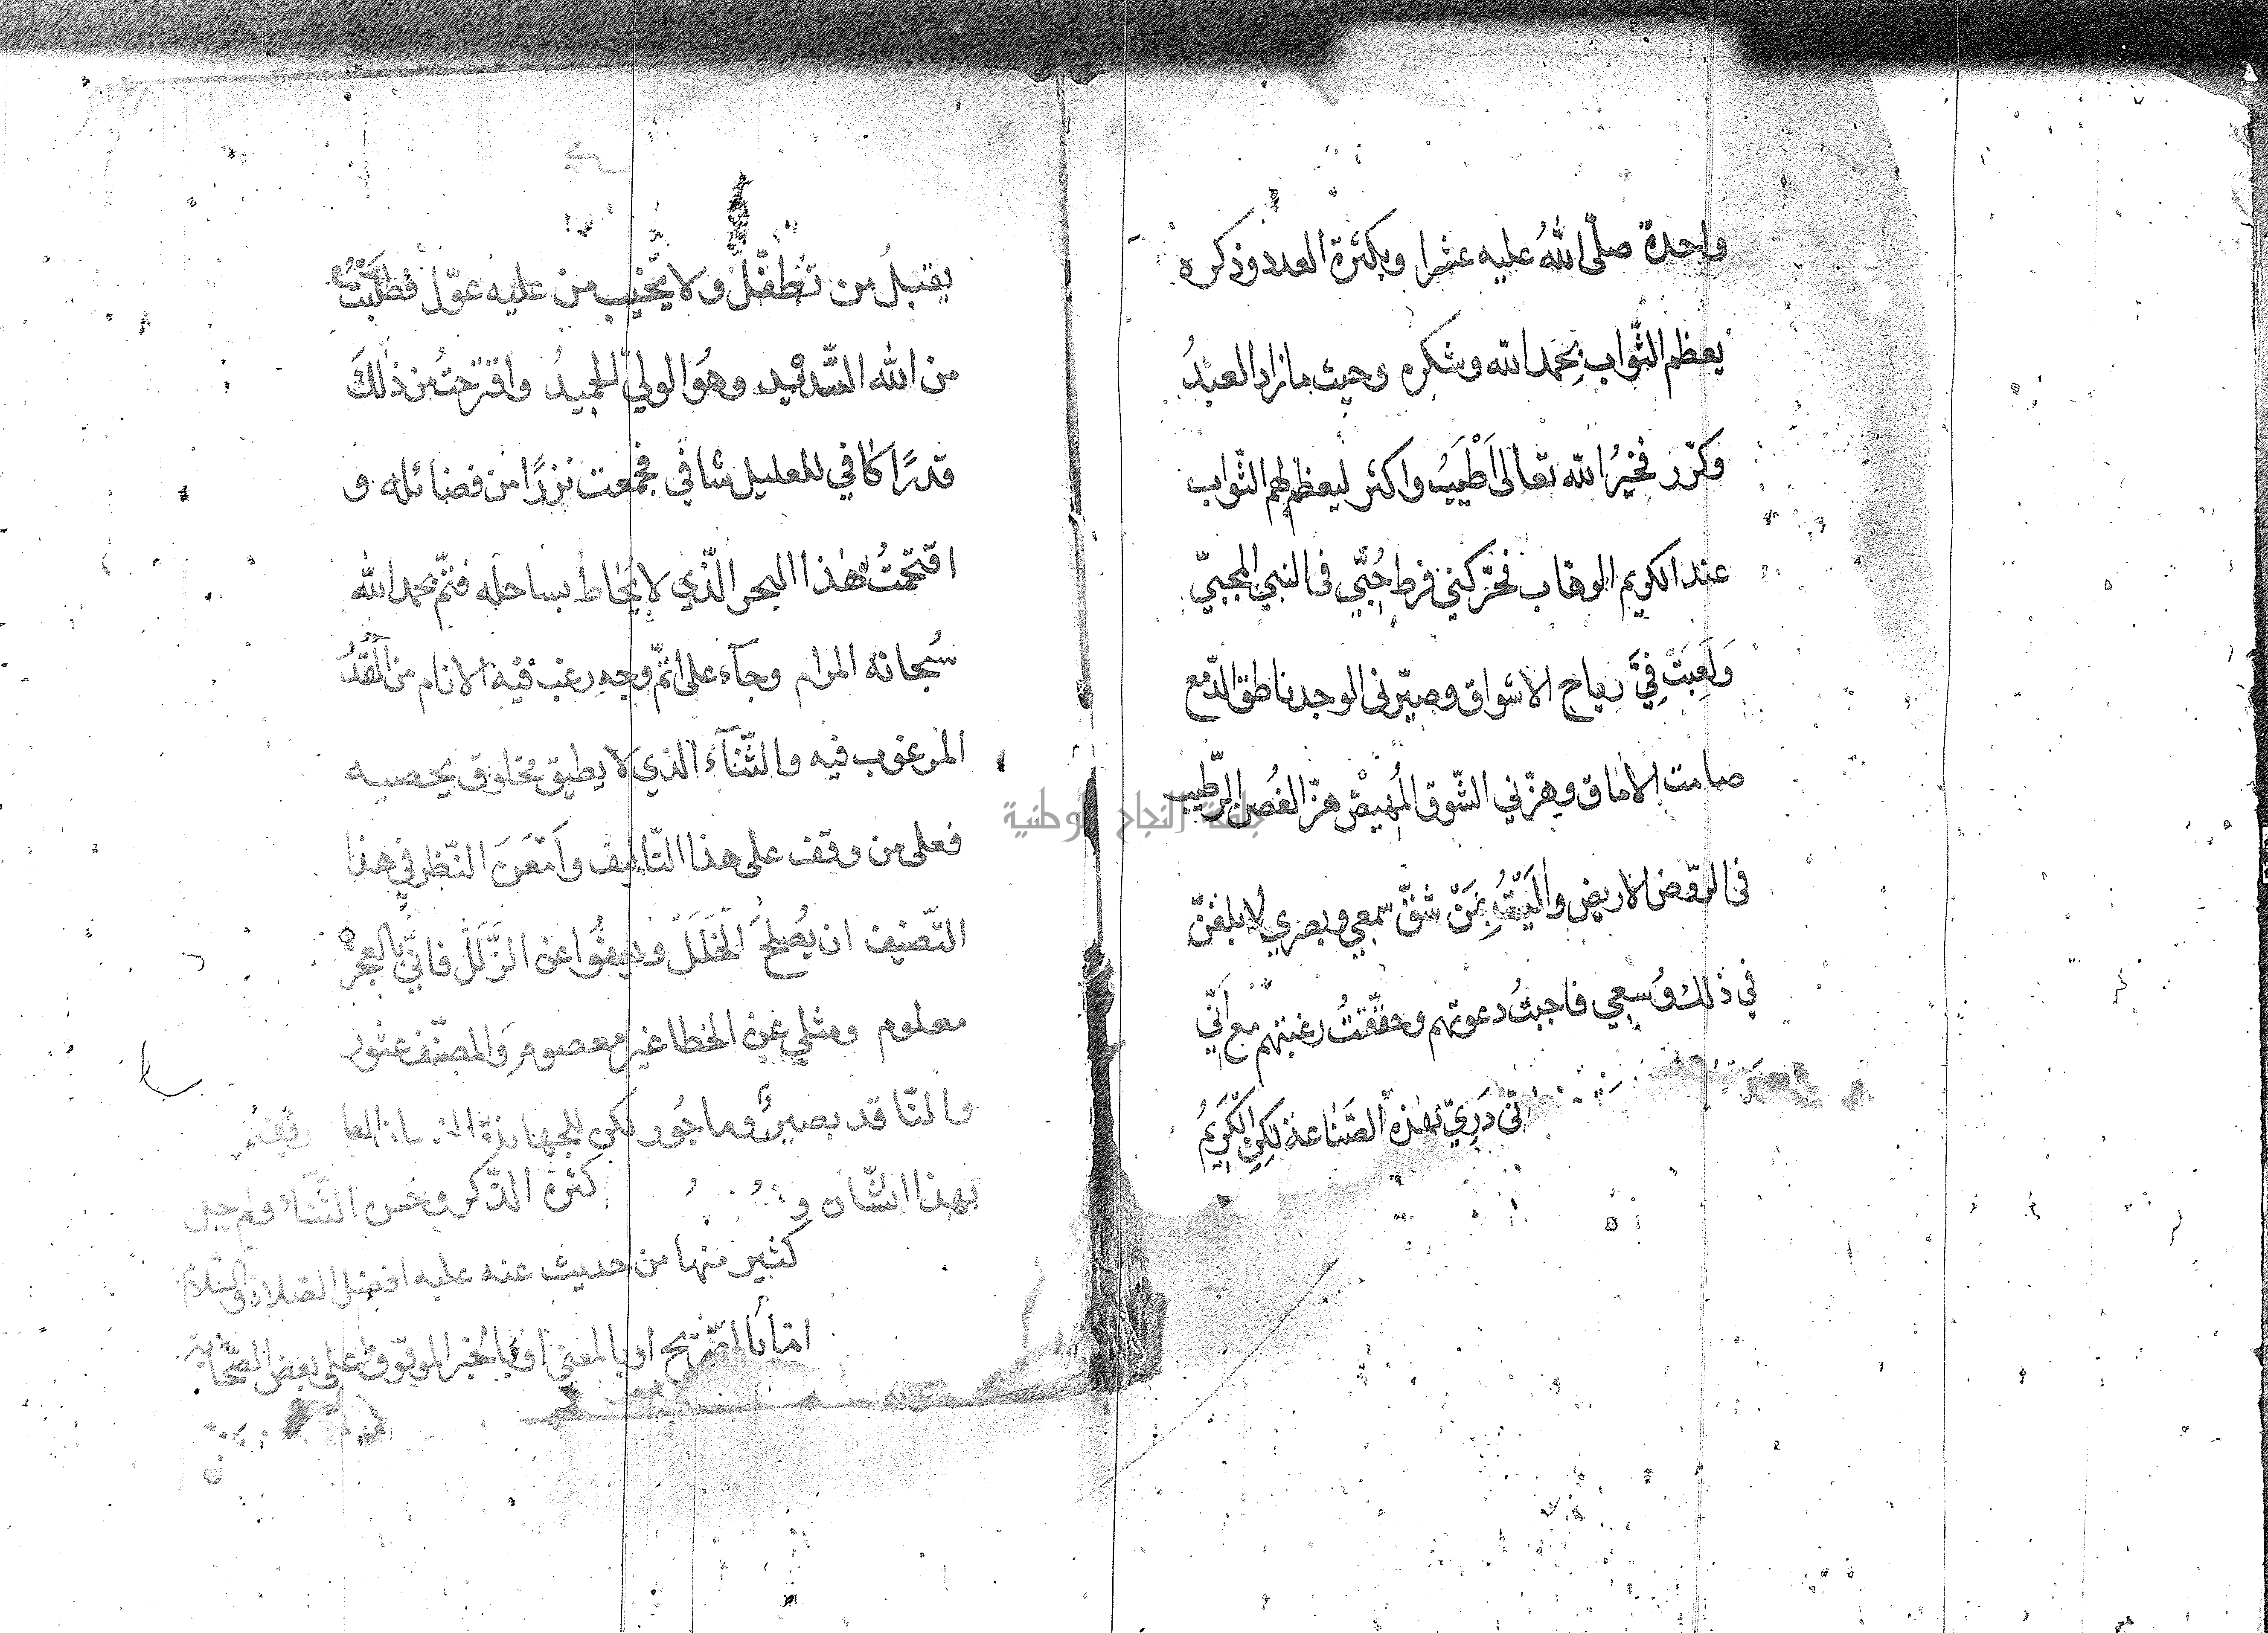 واحدة صلّى اللهُ عليه عشرا وبكثرة العدد وذكره
يعظم الثّواب بحمد الله وشكره وحيث ما زاد العبدُ
وكرّر فخيرُ الله تعالى أَطْيَبُ واكثر ليعظم لهم الثّواب
عند الكريم الوهّاب فحرّكني فرط حُبّي في النبي
وَلَعِبَتْ فِيَّ رياح الاشواق وصيّرني الوجد ناطق الدّمع
صامت الأماق وهزّني الشّوق المُهيض هزّ الغُصن الرّطيب
في الروّض الاريض وأَلَيْتُ بِمَنْ شقّ سمعي وبصري لابلغنّ
في ذلك وُسعي فاجبتُ دعوتهم وحقّقتُ رغبتهم مع أنّي
دَرِيّ بهٰذه الصّناعة لكِن الكريمُ
يقبلُ من تطفّلَ ولا يُخيّب من عليه عوّل فطلبتُ
من الله السّديد وهوَ الوليّ الحميدُ واقترحتُ من ذٰلكَ
قدرًا كافي للعليل شافي فجمعت نزرًا من فضائله و
اقتحمتُ هٰذا البحر الّذي لا يُحاط بساحله فتمّ بحمد الله
سُبحانه المرام وجآء على اتمّ وجه رغب فيه الانام من
المرغوب فيه والثّنآء الذي لا يطيق مخلوق يحصيه
فعلى من وقف على هذا التّاليف وأَمْعَنَ النّظر في هذا
التّصنيف ان يُصلحَ الخَلَلَ ويعفُوا عن الزَّلَل فانّي بالعجز
معلوم ومثلي عن الخطا غير معصوم وَالمصنّف عثور
والنّاقد بصيرٌ وماجُور لكن للجهابذة
بهذا الشّان كثرة الذّكر وحسن الثّناء ولم
كثير منها من حديث عنه عليه افضل الصّلاة والسّلام
امّا بالتّصريح او بالمعنى او بالخبر الموقوف على بعض الصّحابة
جامعة النجاح الوطنية